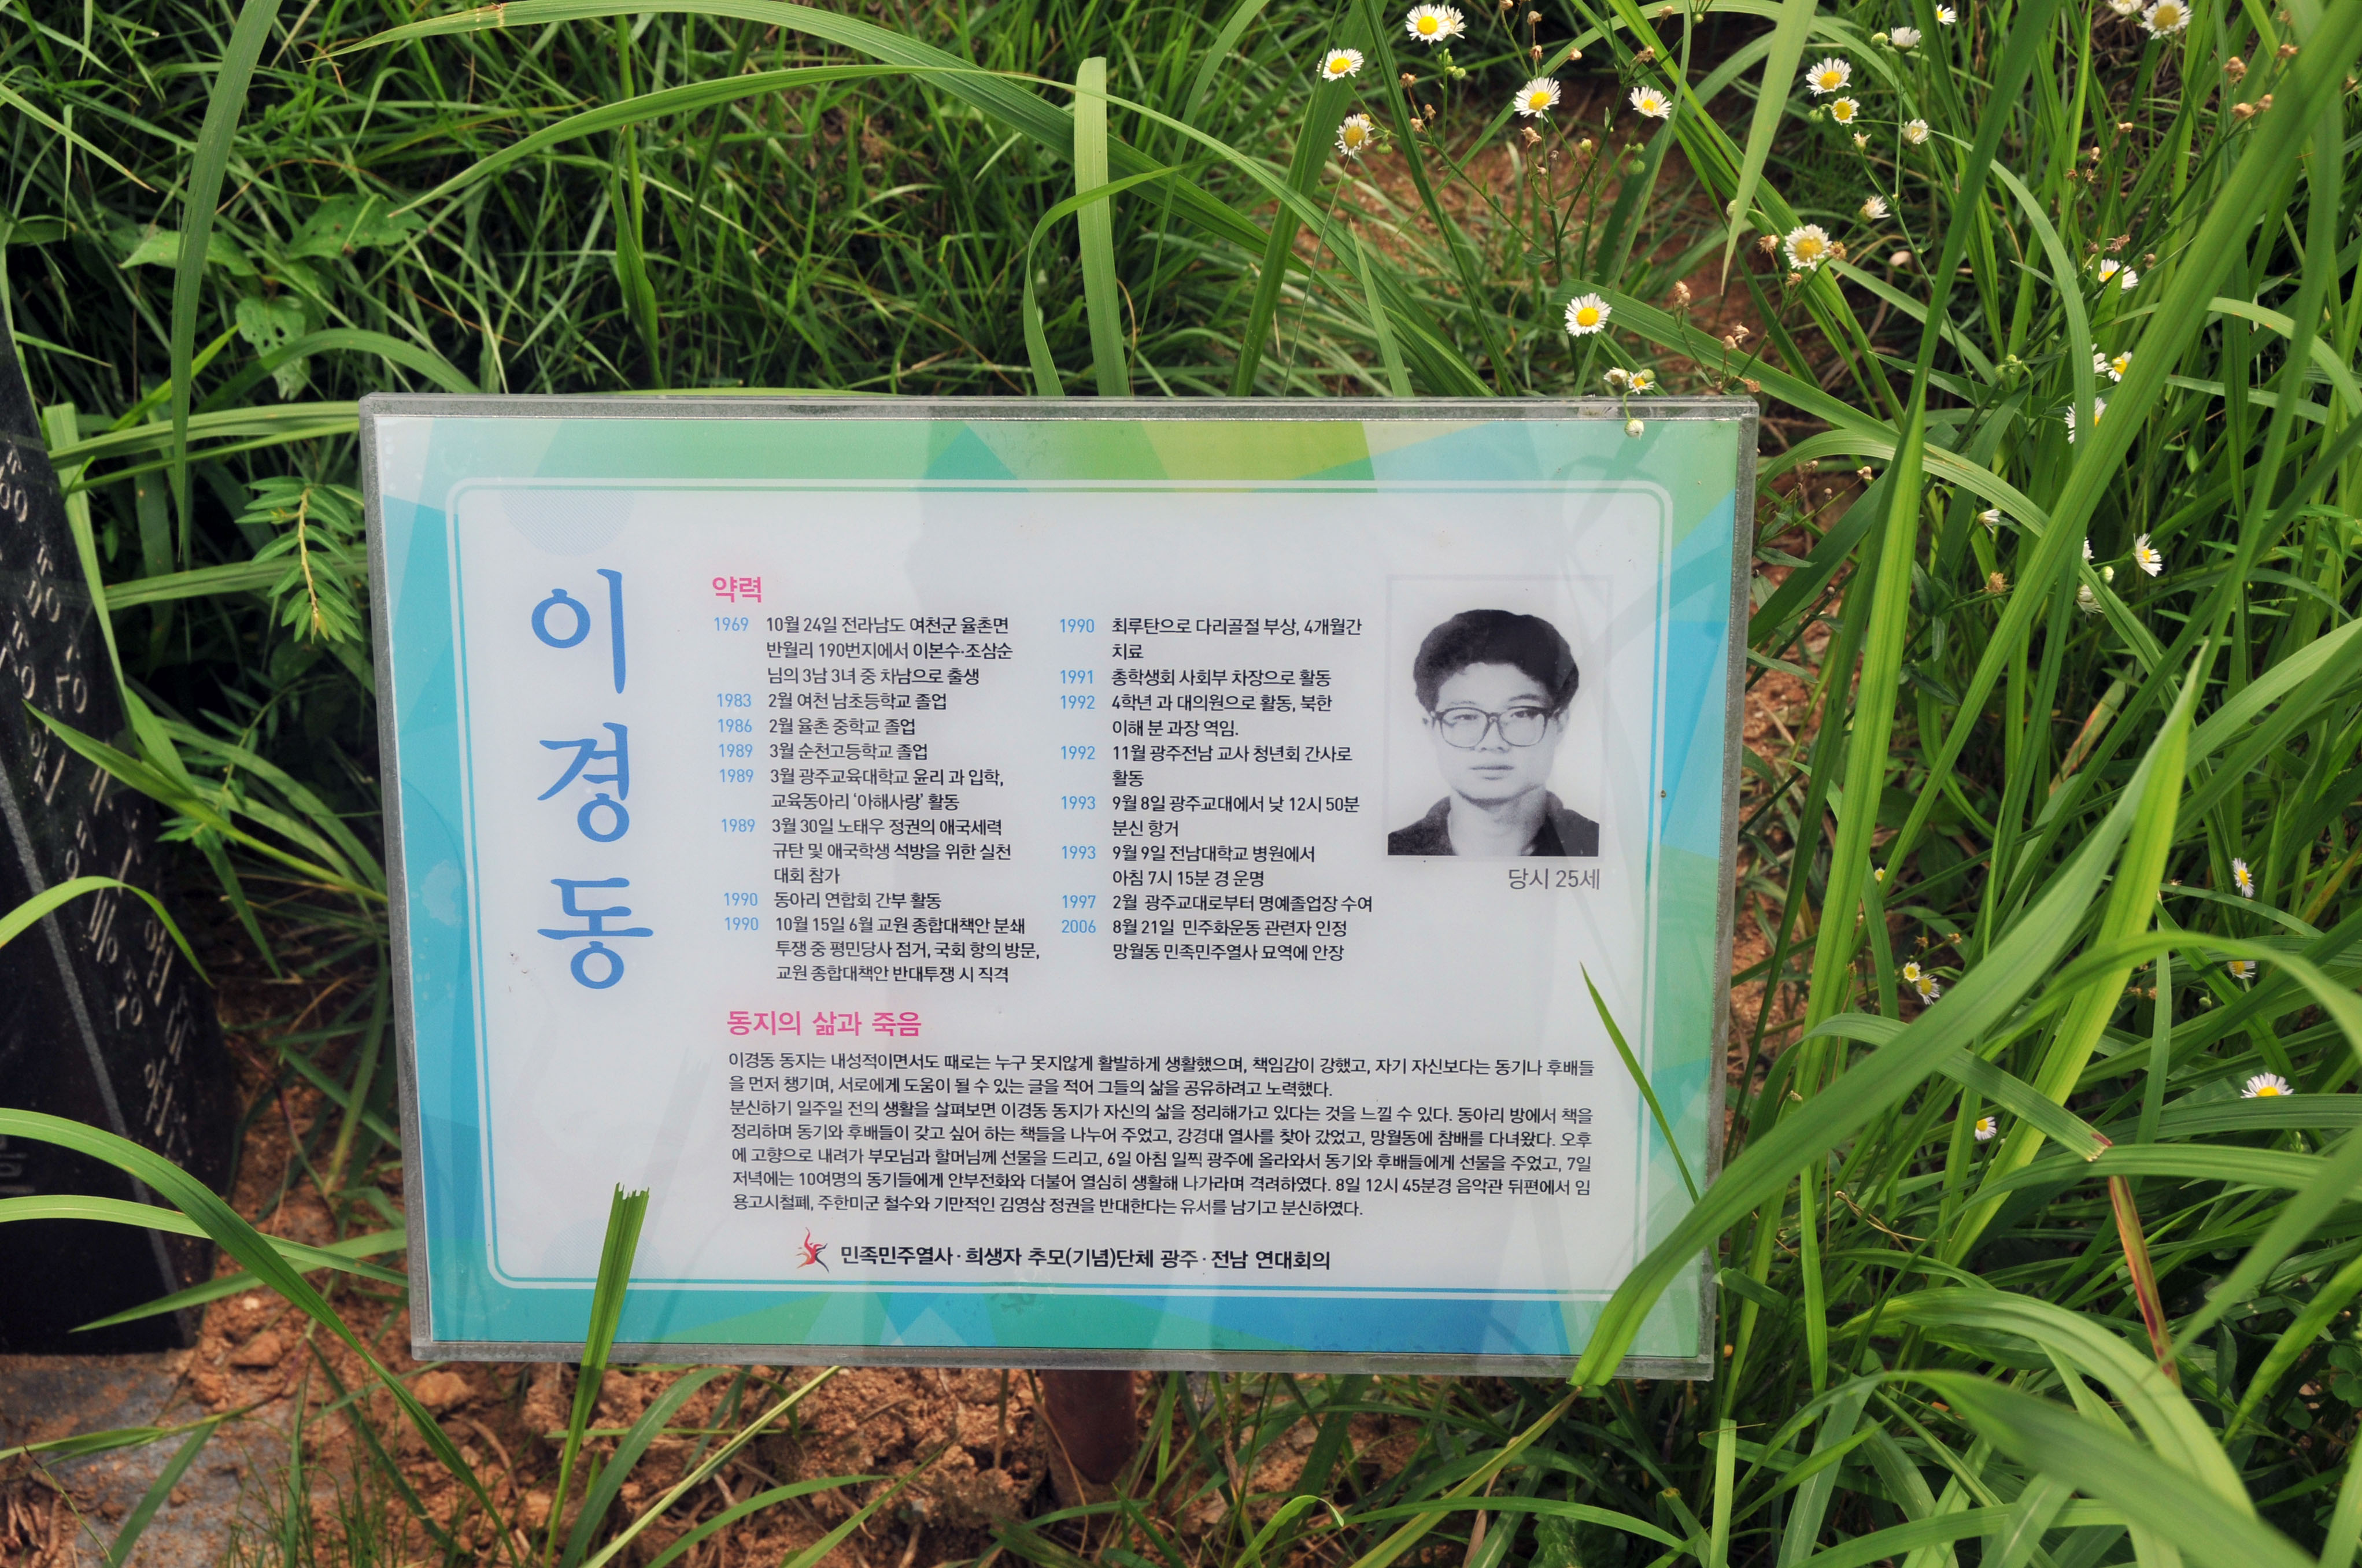 이경동
약력
1969 10월 24일 전라남도 여천군 율촌면
반월리 190번지에서 이본수·조삼순
님의 3남 3녀 중 차남으로 출생
1983 2월 여천 남초등학교 졸업
1986 2월 율촌 중학교 졸업
1989 3월 순천고등학교 졸업
1989 3월 광주교육대학교 윤리 과 입학,
교육동아리 '아해사랑' 활동
1989 3월 30일 노태우 정권의 애국세력
규탄 및 애국학생 석방을 위한 실천
대회 참가
1990 동아리 연합회 간부 활동
1990 10월 15일 6월 교원 종합대책안 분쇄
투쟁 중 평민당사 점거, 국회 항의 방문,
교원 종합대책안 반대투쟁 시 직격
1990 최루탄으로 다리골절 부상, 4개월간
치료
1991 총학생회 사회부 차장으로 활동
1992 4학년 과 대의원으로 활동, 북한
이해 분 과장 역임.
1992 11월 광주전남 교사 청년회 간사로
활동
1993 9월 8일 광주교대에서 낮 12시 50분
분신 항거
1993 9월 9일 전남대학교 병원에서
아침 7시 15분 경 운명
1997 2월 광주교대로부터 명예졸업장 수여
2006 8월 21일 민주화운동 관련자 인정
망월동 민족민주열사 묘역에 안장
당시 25세
동지의 삶과 죽음
이경동 동지는 내성적이면서도 때로는 누구 못지않게 활발하게 생활했으며, 책임감이 강했고, 자기 자신보다는 동기나 후배들
을 먼저 챙기며, 서로에게 도움이 될 수 있는 글을 적어 그들의 삶을 공유하려고 노력했다.
분신하기 일주일 전의 생활을 살펴보면 이경동 동지가 자신의 삶을 정리해가고 있다는 것을 느낄 수 있다. 동아리 방에서 책을
정리하며 동기와 후배들이 갖고 싶어 하는 책들을 나누어 주었고, 강경대 열사를 찾아 갔었고, 망월동에 참배를 다녀왔다. 오후
에 고향으로 내려가 부모님과 할머님께 선물을 드리고, 6일 아침 일찍 광주에 올라와서 동기와 후배들에게 선물을 주었고, 7일
저녁에는 10여명의 동기들에게 안부전화와 더불어 열심히 생활해 나가라며 격려하였다. 8일 12시 45분경 음악관 뒤편에서 임
용고시철폐, 주한미군 철수와 기만적인 김영삼 정권을 반대한다는 유서를 남기고 분신하였다.
민족민주열사·희생자 추모(기념)단체 광주·전남 연대회의